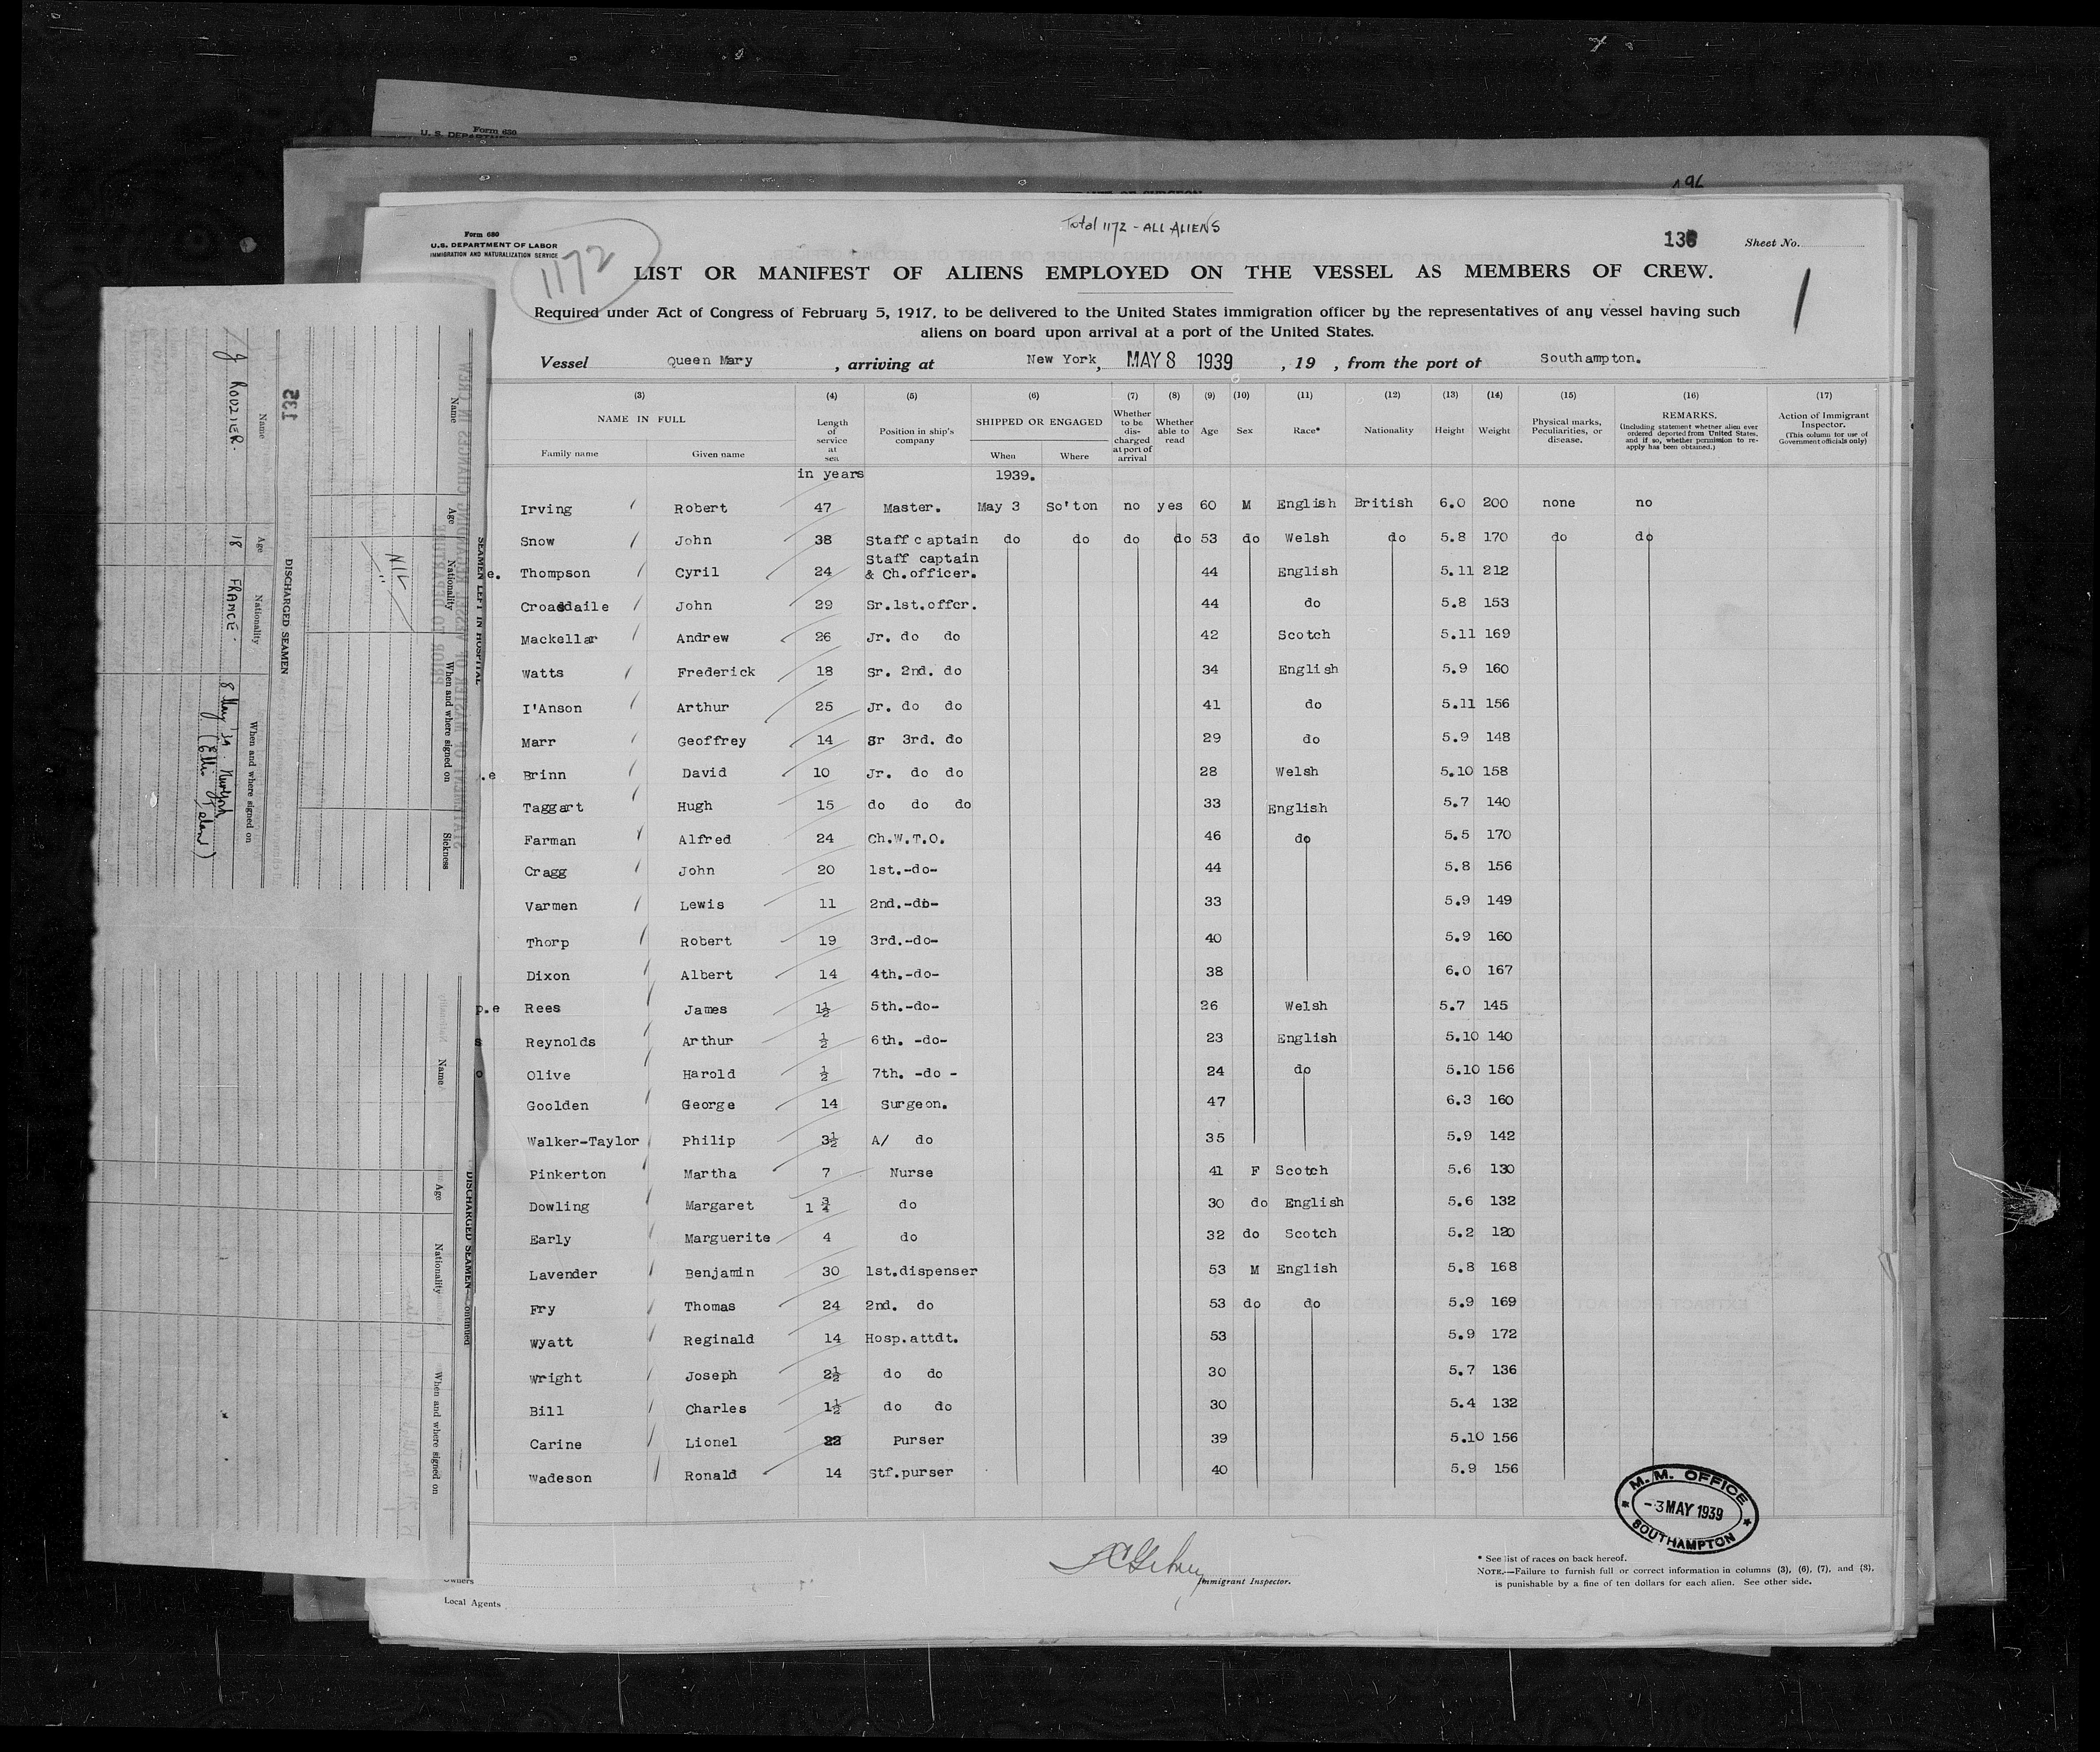 Form 650
196
Total 1172 - ALL ALIENS
Form 680
U.S. DEPARTMENT OF LABOR
IMMIGRATION AND NATURALIZATION SERVICE
1172
136 Sheet No.
1
LIST OR MANIFEST OF ALIENS EMPLOYED ON THE VESSEL AS MEMBERS OF CREW.
Required under Act of Congress of February 5, 1917, to be delivered to the United States immigration officer by the representatives of any vessel having such
aliens on board upon arrival at a port of the United States.
Vessel Queen Mary , arriving at New York, MAY 8 1939 , 19 , from the port of Southampton.
(3) (4) (5) (6) (7) (8) (9) (10) (11) (12) (13) (14) (15) (16) (17)
NAME IN FULL Family name Given name
Length of service at sea
Position in ship's company
SHIPPED OR ENGAGED When Where
Whether to be discharged at port of arrival
Whether able to read
Age Sex Race* Nationality Height Weight
Physical marks, Peculiarities, or disease.
REMARKS,
(Including statement whether alien ever ordered deported from United States, and if so, whether permission to reapply has been obtained.)
Action of Immigrant Inspector.
(This column for use of Government officials only)
in years 1939.
Irving Robert 47 Master. May 3 So'ton no yes 60 M English British 6.0 200 none no
Snow John 38 Staff captain do do do do 53 do Welsh do 5.8 170 do do
e. Thompson Cyril 24 Staff captain & Ch.officer. 44 English 5.11 212
Croasdaile John 29 Sr.1st.offcr. 44 do 5.8 153
Mackellar Andrew 26 Jr. do do 42 Scotch 5.11 169
Watts Frederick 18 Sr. 2nd. do 34 English 5.9 160
I'Anson Arthur 25 Jr. do do 41 do 5.11 156
Marr Geoffrey 14 Sr 3rd. do 29 do 5.9 148
.e Brinn David 10 Jr. do do 28 Welsh 5.10 158
Taggart Hugh 15 do do do 33 English 5.7 140
Farman Alfred 24 Ch.W.T.O. 46 do 5.5 170
Cragg John 20 1st.-do- 44 5.8 156
Varmen Lewis 11 2nd.-do- 33 5.9 149
Thorp Robert 19 3rd.-do- 40 5.9 160
Dixon Albert 14 4th.-do- 38 6.0 167
p.e Rees James 1½ 5th.-do- 26 Welsh 5.7 145
s Reynolds Arthur ½ 6th. -do- 23 English 5.10 140
o Olive Harold ½ 7th. -do - 24 do 5.10 156
Goolden George 14 Surgeon. 47 6.3 160
Walker-Taylor Philip 3½ A/ do 35 5.9 142
Pinkerton Martha 7 Nurse 41 F Scotch 5.6 130
Dowling Margaret 1 ¾ do 30 do English 5.6 132
Early Marguerite 4 do 32 do Scotch 5.2 120
Lavender Benjamin 30 1st.dispenser 53 M English 5.8 168
Fry Thomas 24 2nd. do 53 do do 5.9 169
Wyatt Reginald 14 Hosp.attdt. 53 5.9 172
Wright Joseph 2½ do do 30 5.7 136
Bill Charles 1½ do do 30 5.4 132
Carine Lionel 22 Purser 39 5.10 156
Wadeson Ronald 14 Stf.purser 40 5.9 156
M.M. OFFICE
-3 MAY 1939
SOUTHAMPTON
Immigrant Inspector.
* See list of races on back hereof.
NOTE.—Failure to furnish full or correct information in columns (3), (6), (7), and (8),
is punishable by a fine of ten dollars for each alien. See other side.
Owners
Local Agents
SEAMEN LEFT IN HOSPITAL
Name Age Nationality When and where signed on Sickness
NIL
DISCHARGED SEAMEN
135
Name Age Nationality When and where signed on
J RODZIER. 18 FRANCE. 8 May '39. New York
(Ellis Island)
DISCHARGED SEAMEN—continued
Name Age Nationality When and where signed on